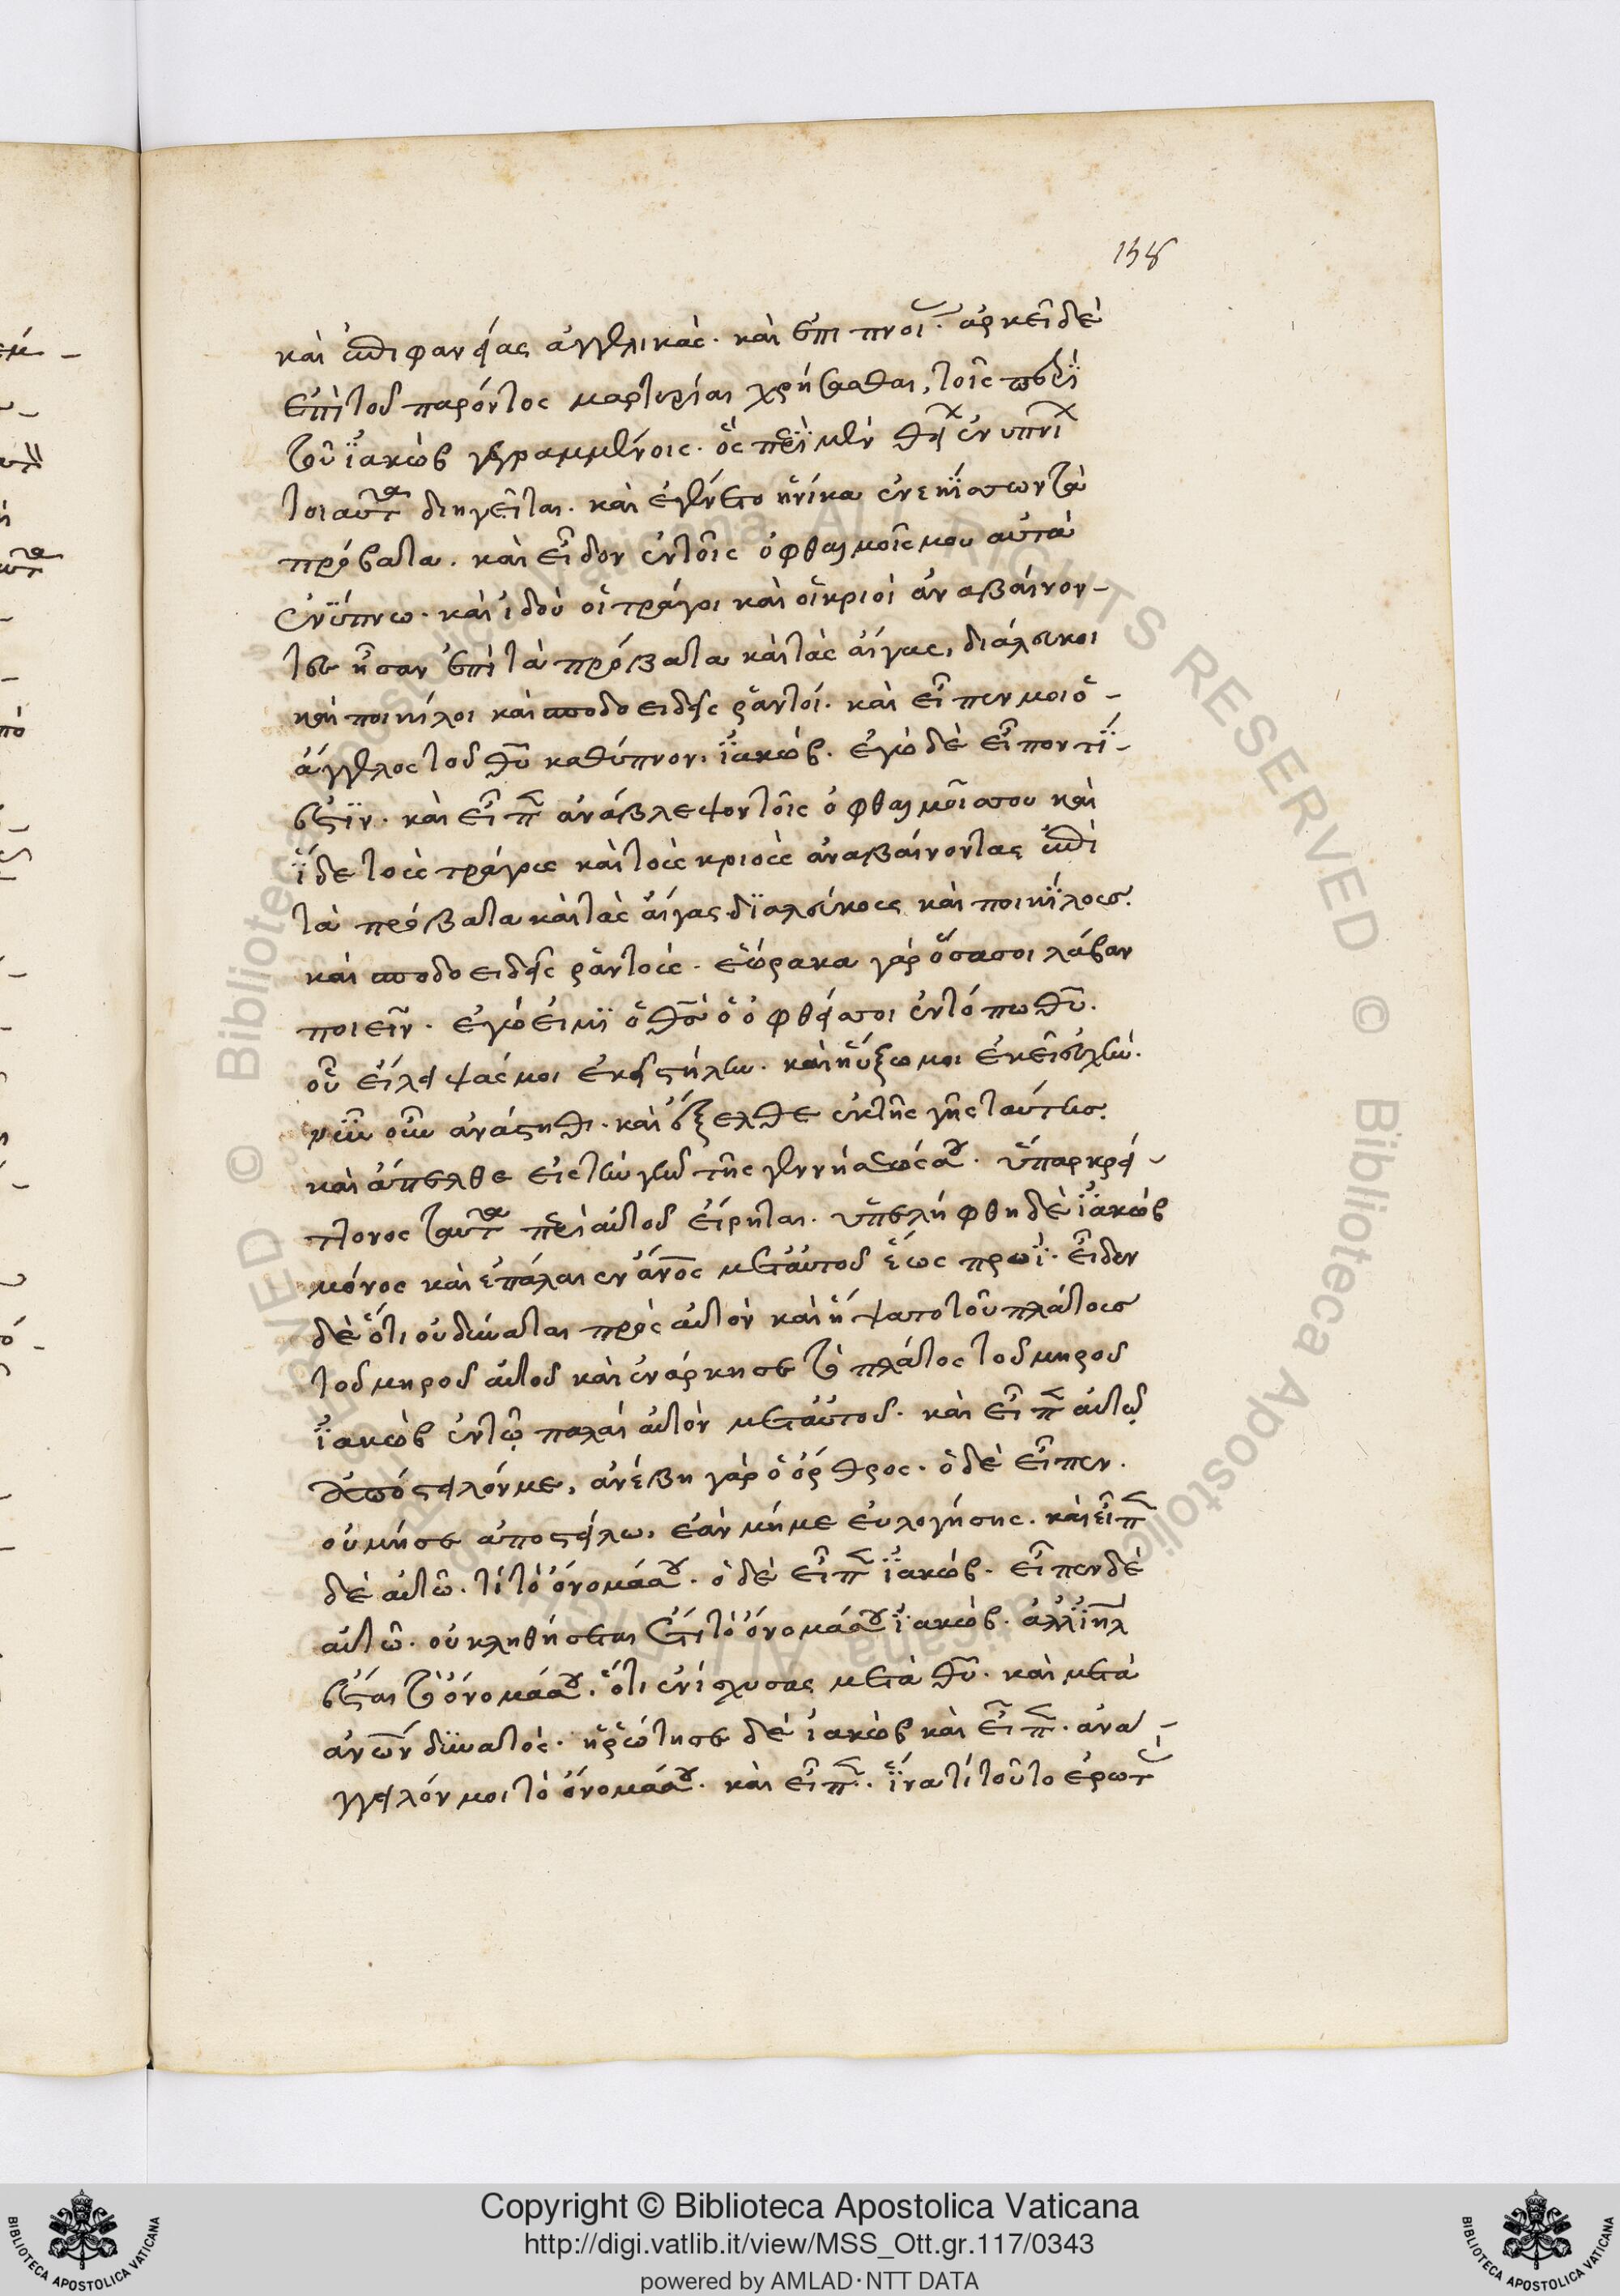 158
καὶ ἐπιφανείας ἀγγελικὰς. καὶ ἐπιπνοί. ἀρκεῖ δὲ
ἐπὶ τοῦ παρόντος μαρτυρίαι χρήσασθαι, τοῖς περὶ
τοῦ ἰακὼβ γεγραμμένοις. ὃς περὶ μὲν θεί ἐνυπνί
τοιαῦτα διηγεῖται. καὶ ἐγένετο ἡνίκα ἐνεκίσσων τὰ
πρόβατα. καὶ εἶδον ἐν τοῖς ὀφθαλμοῖς μου αὐτὰ
ἐν ὕπνω. καὶ ἰδοὺ οἱ τράγοι καὶ οἱ κριοὶ ἀναβαίνον-
τες ἦσαν ἐπὶ τὰ πρόβατα καὶ τὰς αἶγας, διάλευκοι
καὶ ποικίλοι καὶ σποδοειδεῖς ῥαντοί. καὶ εἶπεν μοι ὁ -
ἄγγελος τοῦ θυ καθύπνον. ἰακώβ. ἐγὼ δὲ εἶπον τί -
ἐστιν. καὶ εἶπ ἀνάβλεψον τοῖς ὀφθαλμοῖς σου καὶ
ἴδε τοὺς τράγους καὶ τοὺς κριοὺς ἀναβαίνοντας ἐπὶ
τὰ πρόβατα καὶ τὰς αἶγας διαλεύκους καὶ ποικίλους.
καὶ σποδοειδεῖς ῥαντοὺς. ἑώρακα γὰρ ὅσα σοι λάβαν
ποιεῖν. ἐγώ εἰμι ὁ θς ὁ ὀφθείς σοι ἐν τόπω θυ.
οὗ εἴλειψάς μοι ἐκεῖ στήλην. καὶ ηὔξω μοι ἐκεῖ εὐχήν.
νῦν οὖν ἀνάστηθι. καὶ ἔξελθε ἐκ τῆς γῆς ταύτης.
καὶ ἄπελθε εἰς τὴν γῆν τῆς γεννήσεώς σου. ὕπαρ κρεί -
ττονος ταῦτα περὶ αὐτοῦ εἴρηται. ὑπελήφθη δὲ ἰακὼβ
μόνος καὶ ἐπάλαιεν ἄνος μετ' αὐτοῦ ἕως πρωί. εἶδεν
δὲ ὅτι οὐ δύναται πρὸς αὐτὸν καὶ ἥψατο τοῦ πλάτους
τοῦ μηροῦ αὐτοῦ καὶ ἐνάρκησε τὸ πλάτος τοῦ μηροῦ
ἰακὼβ ἐν τῶ παλαί αὐτὸν μετ' αὐτοῦ. καὶ εἶπ αὐτῶ
ἀπόστειλόν με, ἀνέβη γὰρ ὁ ὄρθρος. ὁ δὲ εἶπεν.
οὐ μή σε ἀποστείλω, ἐὰν μή με εὐλογήσης. καὶ εἶπ
δὲ αὐτῶ. τί τὸ ὄνομά σου. ὁ δὲ εἶπ ἰακώβ. εἶπεν δὲ
αὐτῶ. οὐ κληθήσεται ἔτι τὸ ὄνομά σου ἰακὼβ. ἀλλ' ιηλ
ἔσται τὸ ὄνομά σου. ὅτι ἐνίσχυσας μετὰ θυ. καὶ μετὰ
ανων δυνατὸς. ἠρώτησε δὲ ἰακὼβ καὶ εἶπ. ἀνά -
γγειλόν μοι τὸ ὄνομά σου. καὶ εἶπ. ἵνα τί τοῦτο ἐρωτ
Copyright © Biblioteca Apostolica Vaticana
http://digi.vatlib.it/view/MSS_Ott.gr.117/0343
powered by AMLAD·NTT DATA